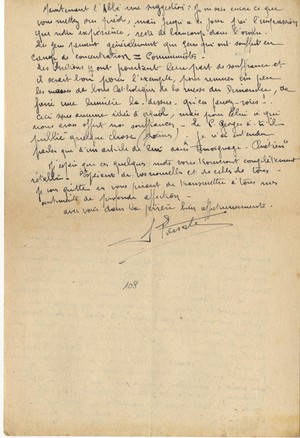 Maintenant l'Abbé une suggestion? Je ne sais encore ce que
vous mettez sur pied, mais jusqu'à ce jour j'ai l'impression
que notre expérience, reste de beaucoup dans l'oubli.
Les gens pensent généralement que ceux qui ont souffert en
camp de concentration = Communistes.
Les Chrétiens y ont pourtant leur part de souffrance et
il serait bon, pour l'exemple, pour remuer un peu
les masses de bons Catholiques de la messe du Dimanche, de
faire une lumière là-dessus. Qu'en pensez-vous?
Ceci sous aucune idée
nous avons offert nos souffrances. Le P.
publié quelque chose (). Je n'ai entendu
parler que d'un article de lui dans "Témoignage Chrétien"
J'espère que ces quelques mots vous trouveront complètement
rétabli. de vos nouvelles et de celles de tous.
Je vous quitte en vous priant de transmettre à tous mes
de profonde affection.
avec vous dans la prière bien affectueusement.
108